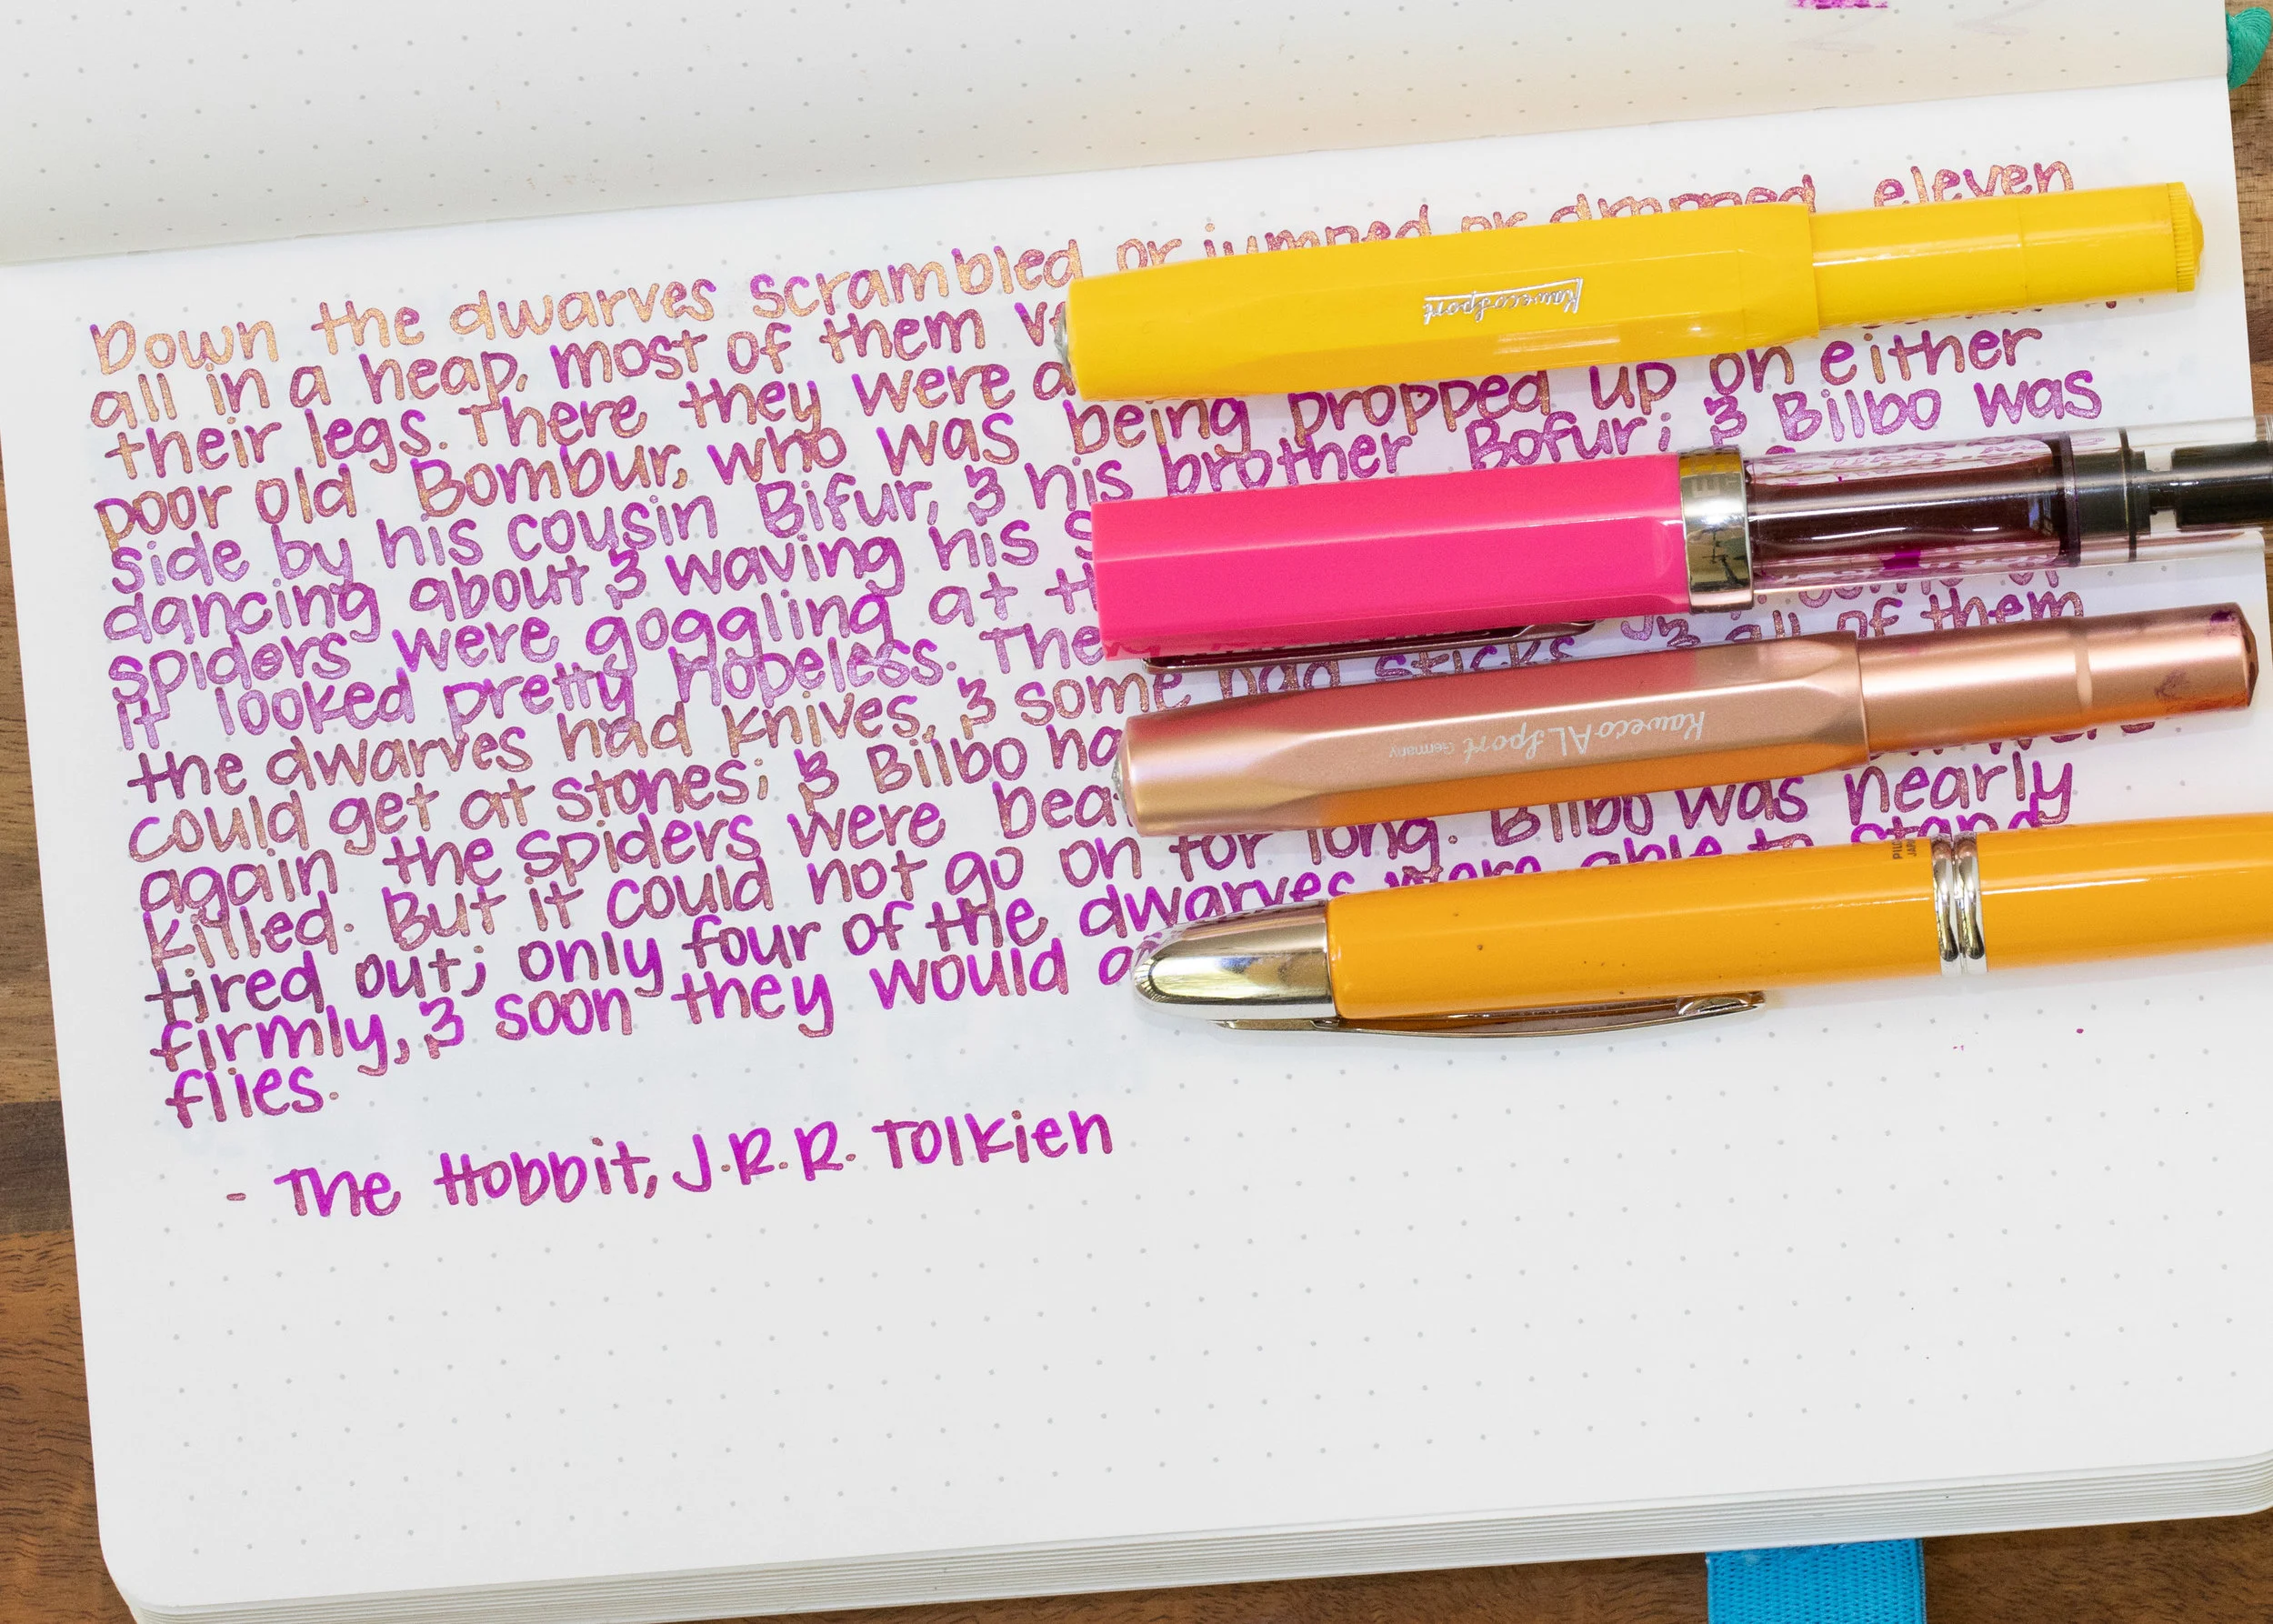 Down the dwarves scrambled or jumped or dropped, eleven
all in a heap, most of them
their legs. There they were
poor old Bombur, who was being propped up on either
side by his cousin Bifur, & his brother Bofur; & Bilbo was
dancing about & waving his
spiders were goggling at
it looked pretty hopeless.
the dwarves had knives, & some had sticks, & all of them
could get at stones; & Bilbo
again the spiders were
killed. But it could not go on for long. Bilbo was nearly
tired out; only four of the dwarves were able to stand
firmly, & soon they would
flies.
- The Hobbit, J.R.R. Tolkien
Kaweco Sport
Kaweco AL Sport Germany